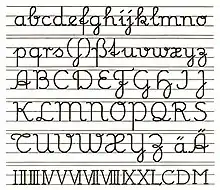 abcdefghijklmno
pqrsſtßtuvwxyz
ABCDEFGHIJ
KLMNOPQRS
TUVWXYZ äÄ
IIIIIIIVVVIVIIVIIIIXXLCDM